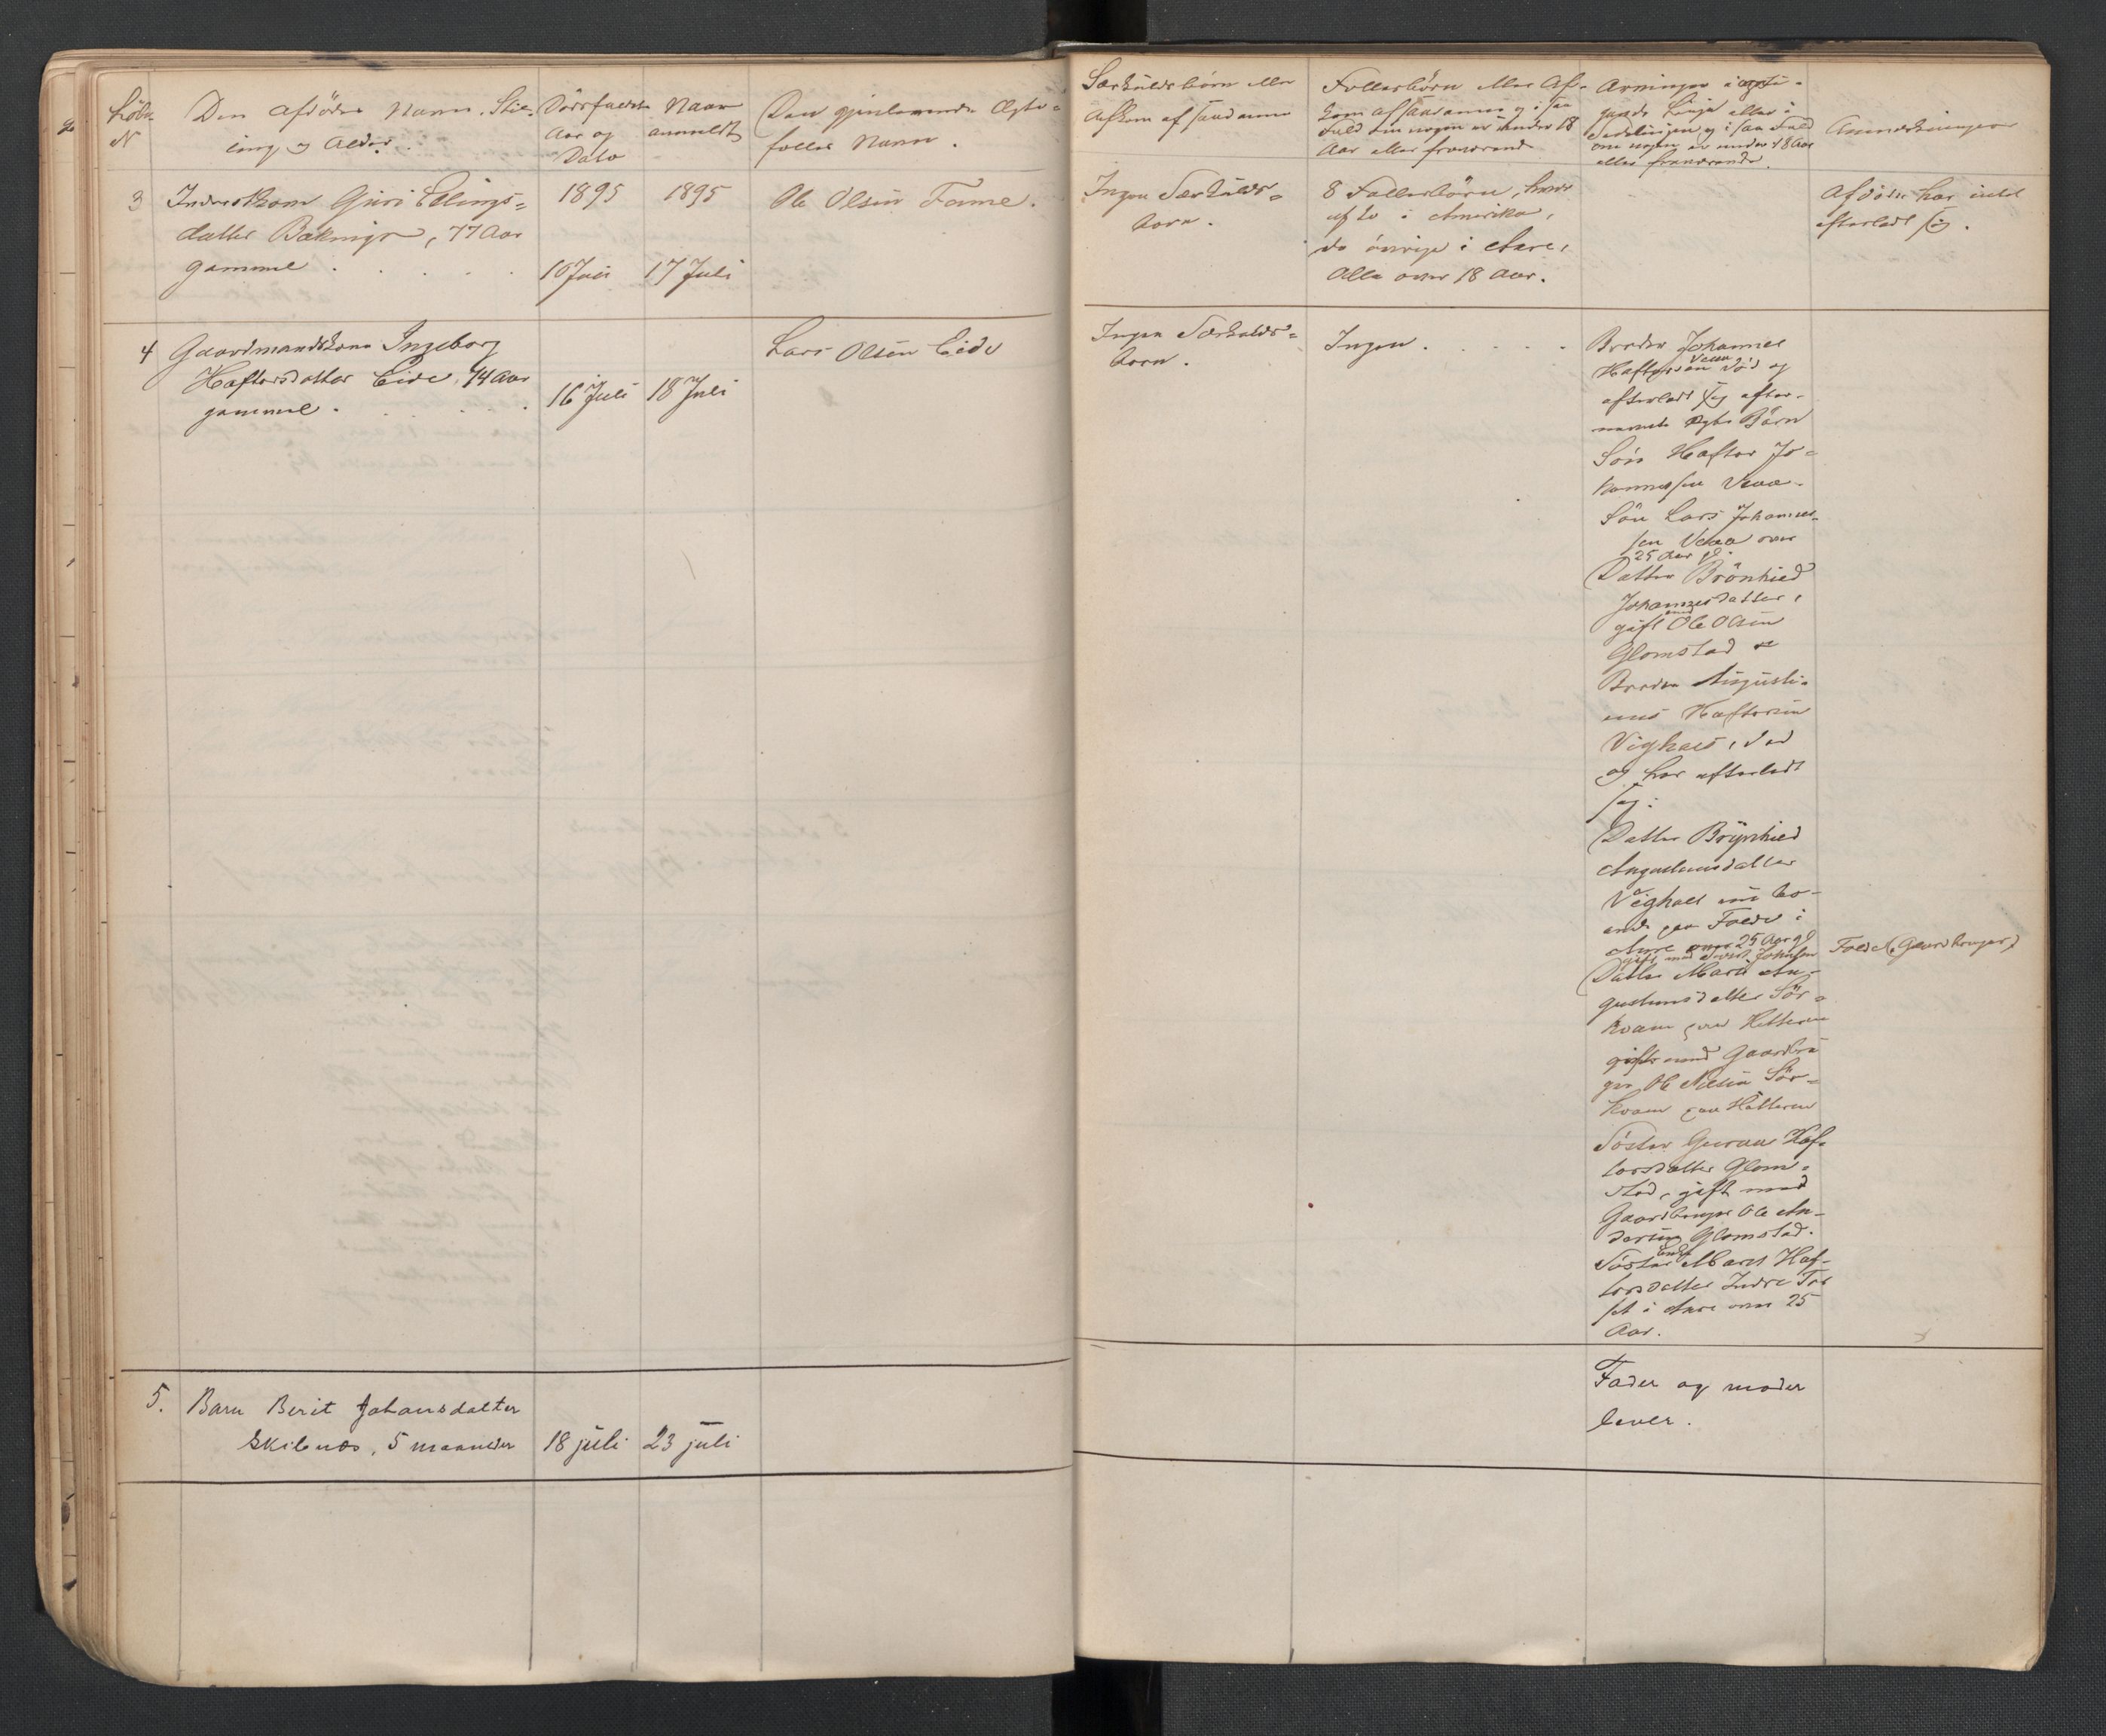 Löbe
N
Den afdødes Navn, Stil-
ling og Alder.
Dødsfaldets
Aar og
Dato
Naar
anmeldt
Den gjenlevende Ægte-
fælles Navn.
Særkuldsbörn eller
Afkom af saadanne
Fællesbörn eller Af-
kom af saadanne og i saa
Fald om nogen er under 18
Aar eller fraværende
Arvinger i opsti-
gende Linje eller i
Sidelinjen og i saa Fald
om nogen er under 18 Aar
eller fraværende.
Anmærkninger
3
Inderstkone Guri Ellings-
datter, 77 Aar
gammel
1895
10 Juli
1895
17 Juli
Ole Olsen
Ingen Særkulds-
børn.
8 Fællesbörn, hvor
af to i Amerika,
de övrige i Aure,
Alle over 18 Aar.
Afdøde har intet
efterladt sig.
4
Gaardmandskone Ingeborg
Haftorsdatter Eide, 74 Aar
gammel.
16 Juli
18 Juli
Lars Olsen Eide
Ingen Særkulds-
børn.
Ingen.
Broder Johannes
Haftorsen død og
efterladt sig efter-
nævnte Ægte Börn
Sön Haftor Jo-
hannessen
Sön Lars Johannes-
sen over
25 Aar gl.
Datter Brönhied
Johannesdatter,
gift med Ole Olsen
Glomstad
Broder Augusti-
nus Haftorsen
Vighals, død
og har efterladt
sig:
Datter Brynhied
Augustinusdatter
Vighals nu bo-
ende paa Folde i
Aure over 25 Aar gl
gift med Johnsen
Datter Marit Au-
gustinusdatter Sör-
kvam paa Hitteren
gift med Gaardbru-
ger Ole Nilsen Sör-
kvam paa Hitteren
Söster Guruna Haf-
torsdatter Glom-
stad, gift med
Gaardbruger Ole An-
dersen Glomstad.
Söster Marit Haf-
torsdatter Indre
i Aure over 25
Aar.
Folde (Gaardbruger)
5.
Barn Berit Johansdatter
Skilnes, 5 maaneder
18 juli
23 juli
Fader og moder
lever.